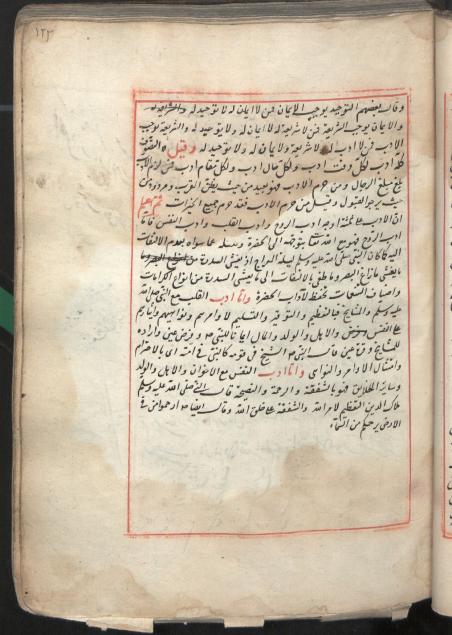 ١٢٣
وقال بعضهم التوحيد يوجب الايمان فمن لا ايمان له لا توحيد له والشريعة
والايمان يوجب الشريعة فمن لا شريعة له لا ايمان له ولا توحيد له والشريعة توجب
الادب فمن لا ادب له لا شريعة له ولا ايمان له ولا توحيد له وقيل التصوف
كله ادب لكل وقت ادب ولكل حال ادب ولكل مقام ادب فمن لزم الادب
بلغ مبلغ الرجال ومن حرم الادب فهو بعيد من حيث يظن القرب ومردود من
حيث يرجو القبول وقيل من حرم الادب فقد حرم جميع الخيرات ثم اعلم
ان الادب على ثلثة اوجه ادب الروح وادب القلب وادب النفس فاما
ادب الروح فهو مع الله تعالى بتوجه الى الحضرة عما سواه بعدم الالتفات
اليه كما كان النبي صلى الله عليه وسلم ليلة المعراج اذ يغشى السدرة
ما يغشى ما زاغ البصر وما طغى بالالتفات الى ما يغشى السدرة من انواع الكرامات
واصناف لآداب الحضرة واما ادب القلب مع النبي صلى الله
عليه وسلم والمشايخ فبالتعظيم والتوقير والتسليم لاوامرهم ونواهيهم وايثارهم
على النفس والاهل والولد والمال للنبي
للشيخ قال النبي الشيخ في قومه كالنبي في امته اى بالاحترام
وامتثال الاوامر والنواهى واما ادب النفس مع الاخوان والاهل والولد
وسائر الخلايق فهو بالشفقة والرحمة والنصيحة قال النبي صلى الله عليه وسلم
ملاك الدين التعظيم لامر الله والشفقة على خلق الله وقال ايضا ارحموا من في
الارض يرحمكم من في السماء